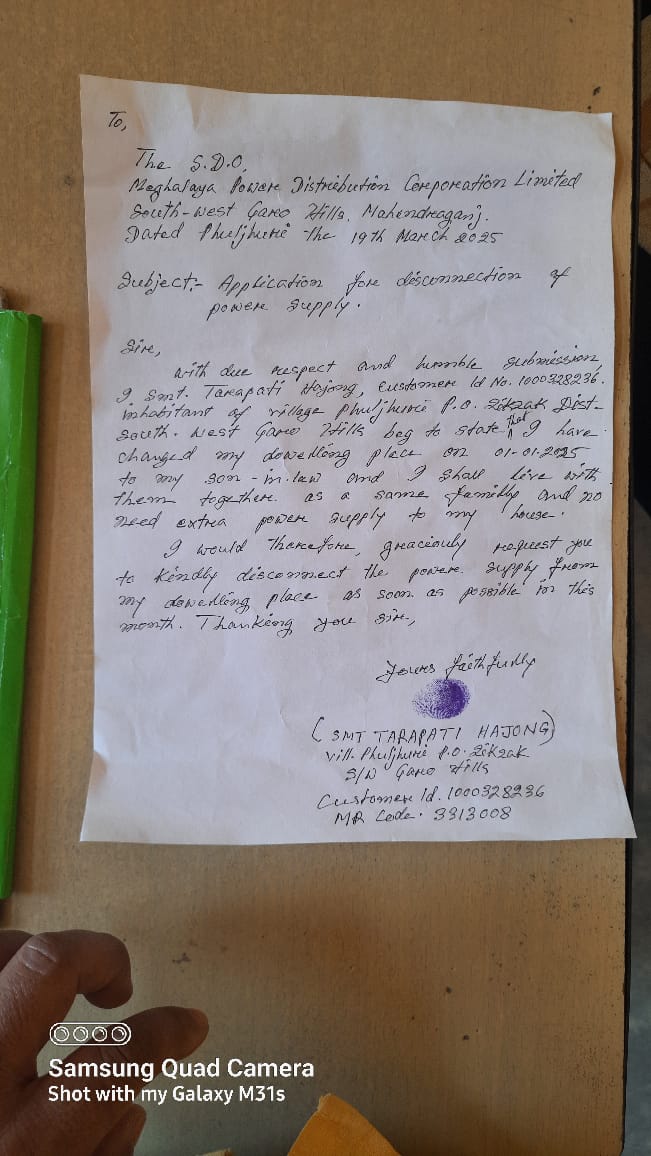 To,
The S.D.O,
Meghalaya Powere Distribution Corporeation Limited
South-west Gareo Hills. Mahendreaganj.
Dated Phuljhurie the 19th March 2025
Subject:- Application fore disconnection of
powere supply.
Sire,
with due respect and humble submission
I Smt. Tareapati Hajong, Customere Id No. 1000328236.
inhabitant of village Phuljhurie P.O. Zikzak Dist-
South. West Gareo Hills beg to state that I have
changed my dowelling place on 01-01-2025
to my son-in-law and I shall live with
them together as a same familly and no
need extra powere supply to my house.
I would therefore, graciouly request you
to kindly disconnect the powere supply from
my dowelling place as soon as possible in this
month. Thanking you sire,
Yours faithfully
(SMT TARAPATI HAJONG)
vill. Phuljhurie P.O. Zikzak
S/W Gareo Hills
Customere Id. 1000328236
MR Code. 3313008
Samsung Quad Camera
Shot with my Galaxy M31s